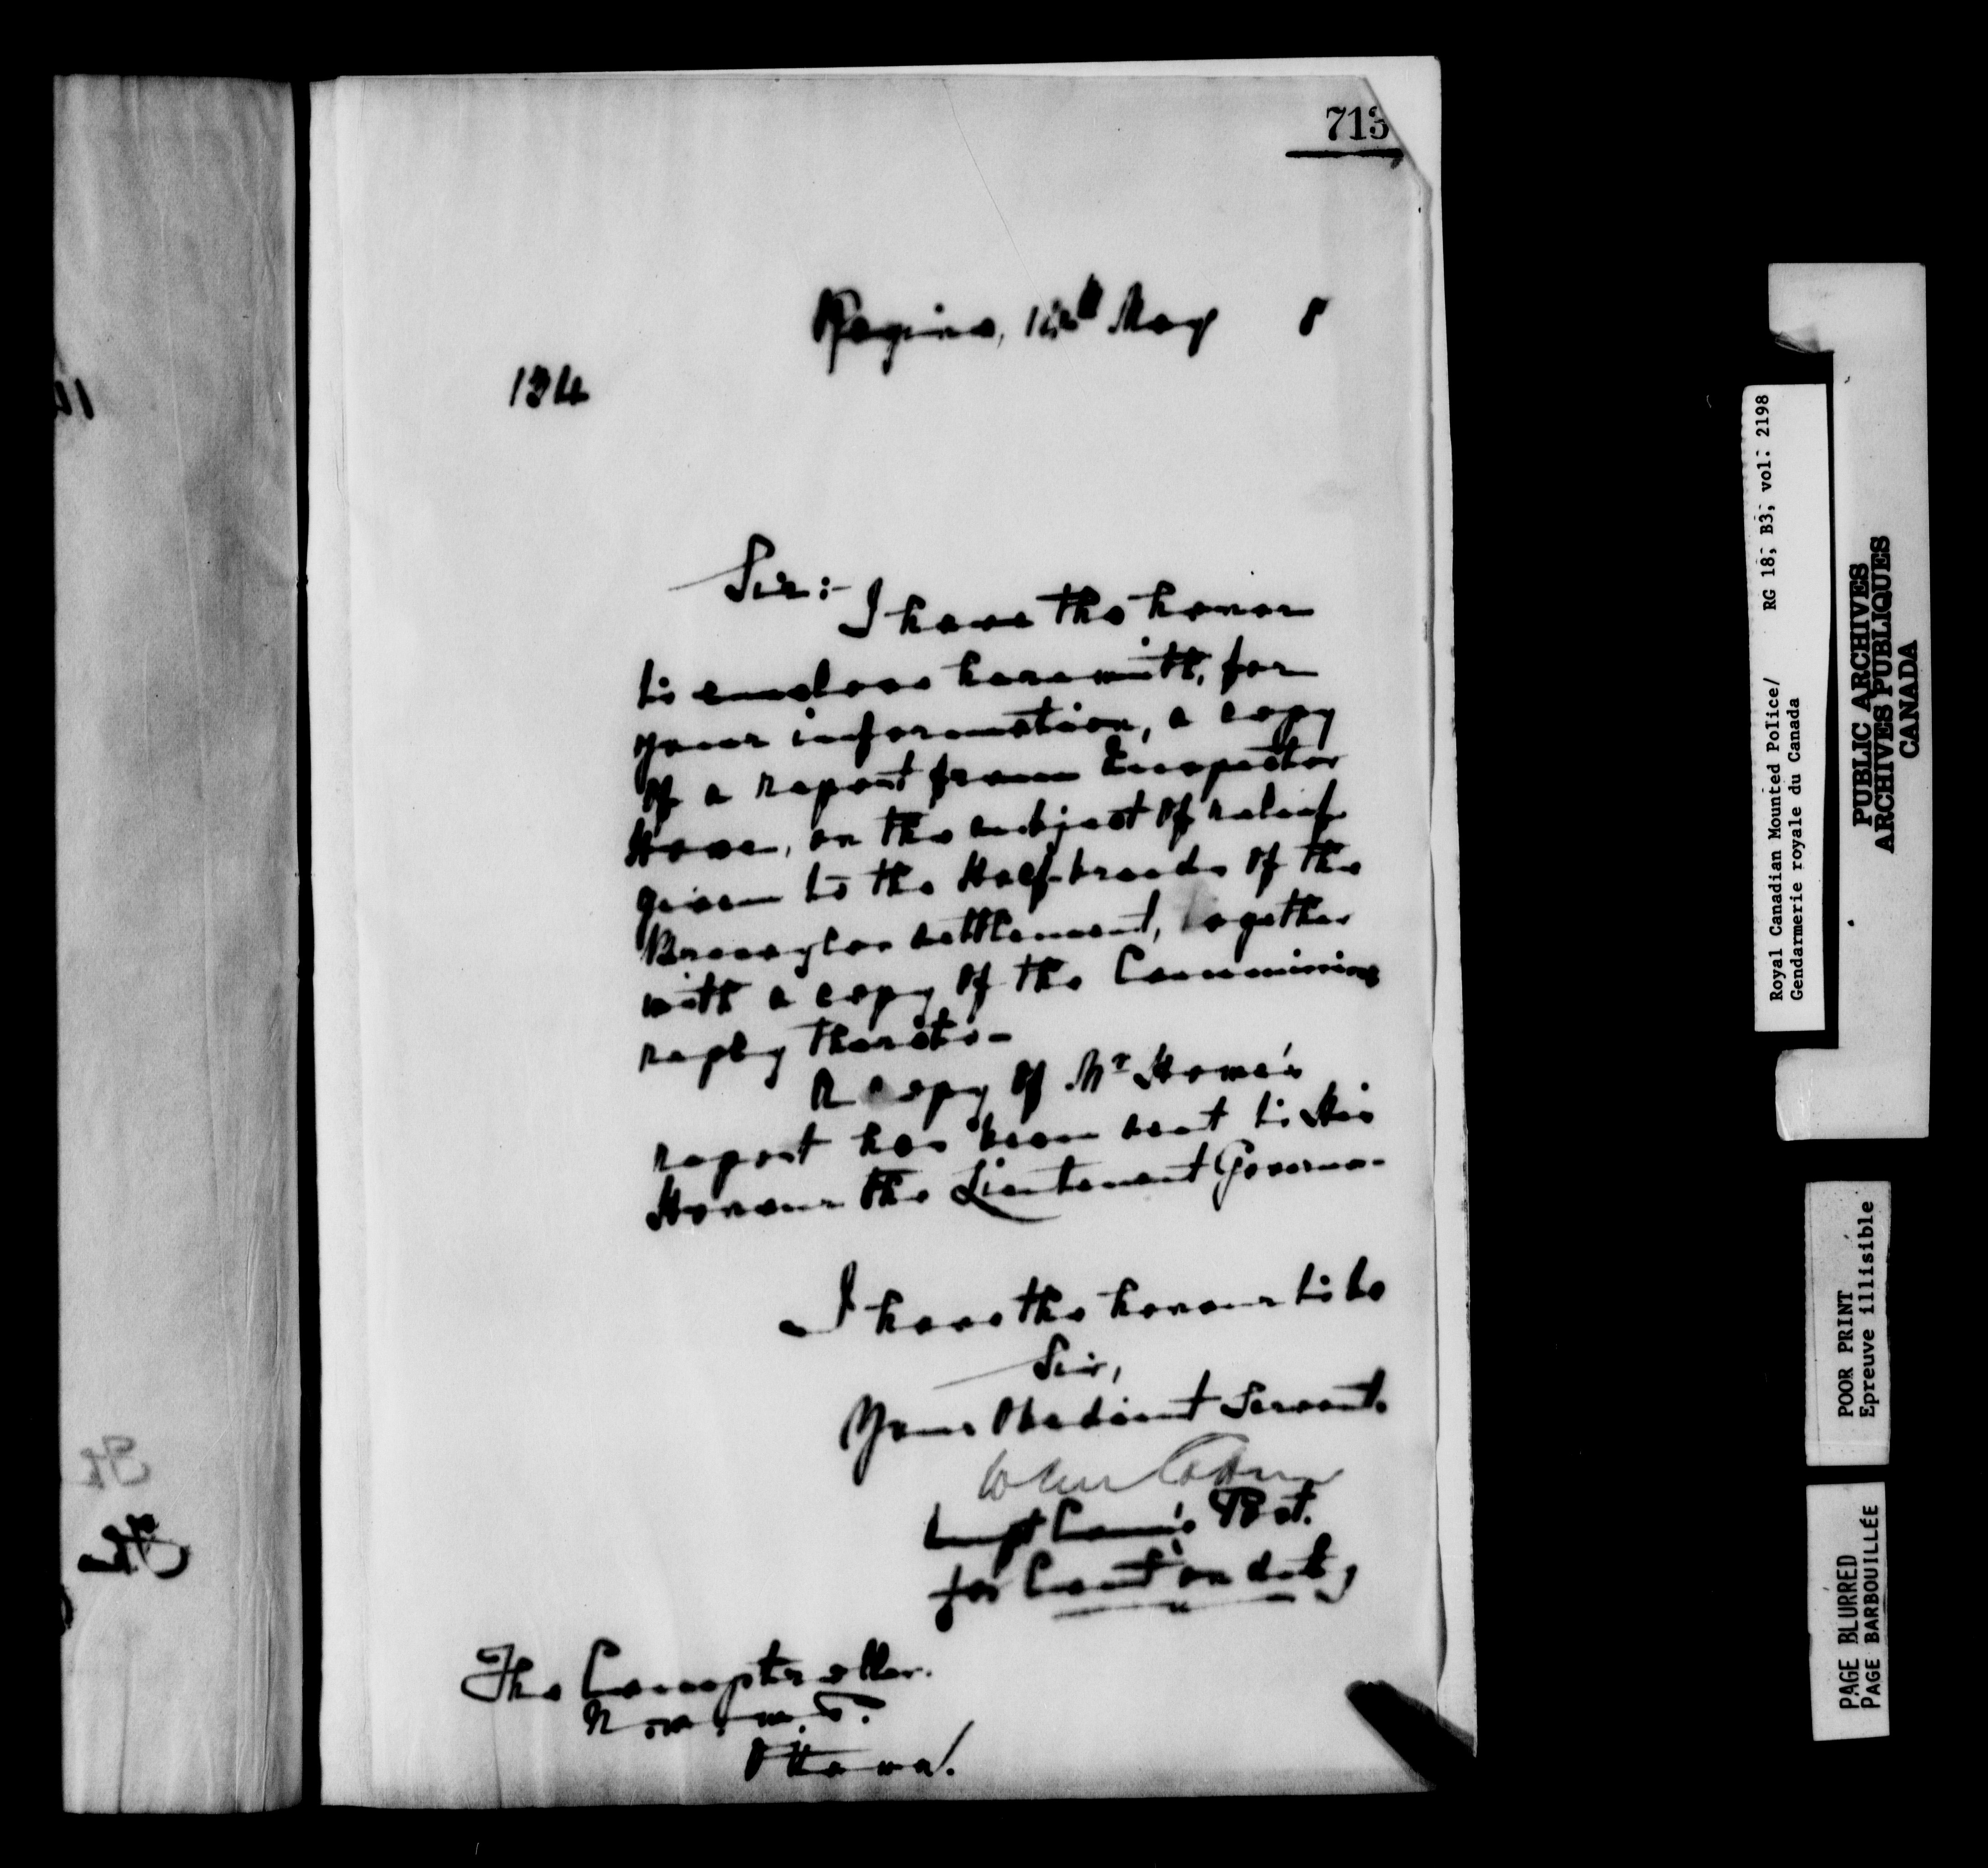 713
Regina, 14th May 8
134
Sir:-
I have the honor
to enclose herewith, for
your information, a copy
of a report from Inspector
Howe, on the subject of relief
given to the Half-breeds of the
settlement, together
with a copy of the Commissioners
reply thereto-
A copy of Mr Howe's
report has been sent to His
Honour the Lieutenant Governor
I have the honour to be
Sir,
Your Obedient Servant.
Supt Com'g
for Com'r on duty
The Comptroller.
N.W.M.P.
Ottawa.
Royal Canadian Mounted Police/ RG 18; B3; vol: 2198
Gendarmerie royale du Canada
PUBLIC ARCHIVES
ARCHIVES PUBLIQUES
CANADA
POOR PRINT
Epreuve illisible
PAGE BLURRED
PAGE BARBOUILLÉE